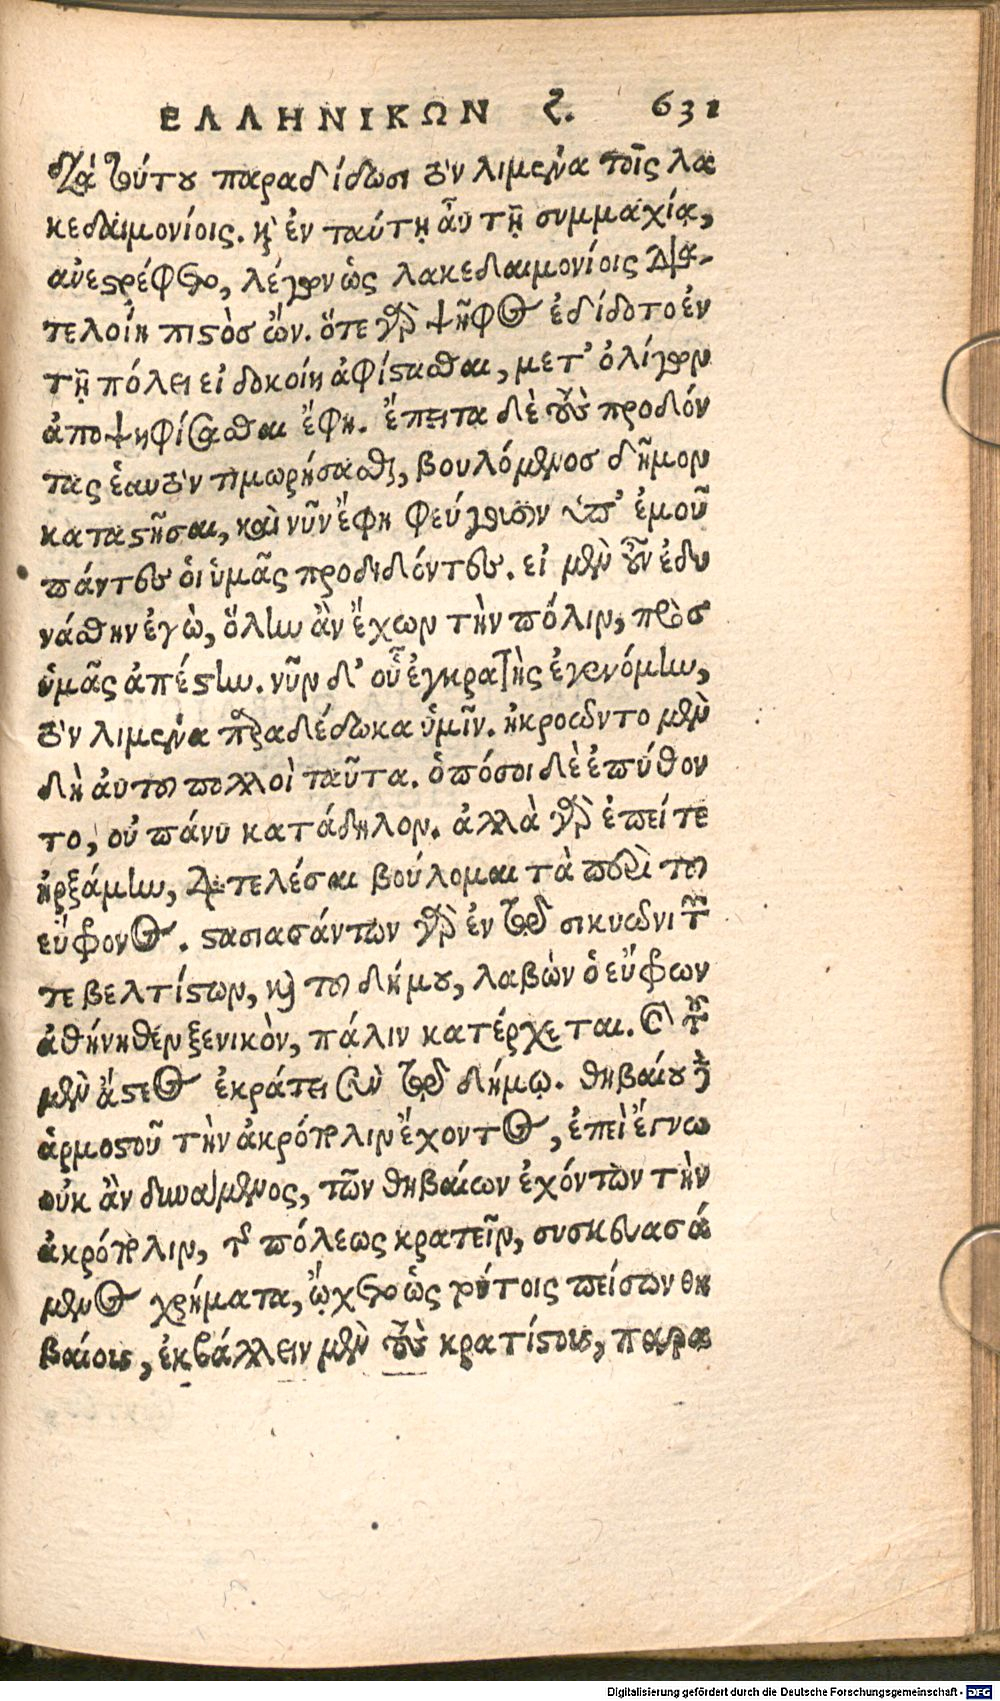 ΕΛΛΗΝΙΚΩΝ ζ. 631
διὰ τούτου παραδίδωσι τὸν λιμένα τοῖς λα
κεδαιμονίοις. καὶ ἐν ταύτῃ αὖ τῇ συμμαχίᾳ,
ἀνεστρέφετο, λέγων ὡς λακεδαιμονίοις δια-
τελοίη πιστὸς ὤν. ὅτε γὰρ ψῆφος ἐδίδοτο ἐν
τῇ πόλει εἰ δοκοίη ἀφίστασθαι, μετ' ὀλίγων
ἀποψηφίσασθαι ἔφη. ἔπειτα δὲ τοὺς προδόν
τας ἑαυτὸν τιμωρήσασθαι, βουλόμενος δῆμον
καταστῆσαι, καὶ νῦν ἔφη φεύγουσιν ὑπ' ἐμοῦ
πάντες οἱ ὑμᾶς προδιδόντες. εἰ μὲν οὖν ἐδυ
νάσθην ἐγὼ, ὅλην ἂν ἔχων τὴν πόλιν, πρὸς
ὑμᾶς ἀπέστην. νῦν δ' οὗ ἐγκρατὴς ἐγενόμην,
τὸν λιμένα παραδέδωκα ὑμῖν. ἠκροῶντο μὲν
δὴ αὐτοῦ πολλοὶ ταῦτα. ὁπόσοι δὲ ἐπύθον
το, οὐ πάνυ κατάδηλον. ἀλλὰ γὰρ ἐπείτε
ἠρξάμην, διατελέσαι βούλομαι τὰ περὶ τοῦ
εὔφρονος. στασιασάντων γὰρ ἐν τῷ σικυῶνι τῶν
τε βελτίστων, καὶ τοῦ δήμου, λαβὼν ὁ εὔφρων
ἀθήνηθεν ξενικὸν, πάλιν κατέρχεται. καὶ τοῦ
μὲν ἄστεος ἐκράτει σὺν τῷ δήμῳ. θηβαίου δὲ
ἁρμοστοῦ τὴν ἀκρόπολιν ἔχοντος, ἐπεὶ ἔγνω
οὐκ ἂν δυνάμενος, τῶν θηβαίων ἐχόντων τὴν
ἀκρόπολιν, τῆς πόλεως κρατεῖν, συσκευασά
μενος χρήματα, ᾤχετο ὡς τούτοις πείσων θη
βαίους, ἐκβάλλειν μὲν τοὺς κρατίστους, παρα
Digitalisierung gefördert durch die Deutsche Forschungsgemeinschaft - DFG